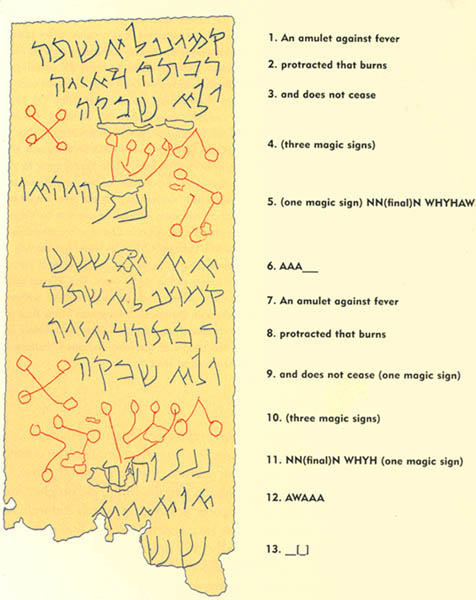 קמיע לאשתה
ולא שבקה
ננן והיהאו
אאא
קמיע לאשתה
ולא שבקה
ננן
1. An amulet against fever
2. protracted that burns
3. and does not cease
4. (three magic signs)
5. (one magic sign) NN(final)N WHYHAW
6. AAA___
7. An amulet against fever
8. protracted that burns
9. and does not cease (one magic sign)
10. (three magic signs)
11. NN(final)N WHYH (one magic sign)
12. AWAAA
13. __[_]